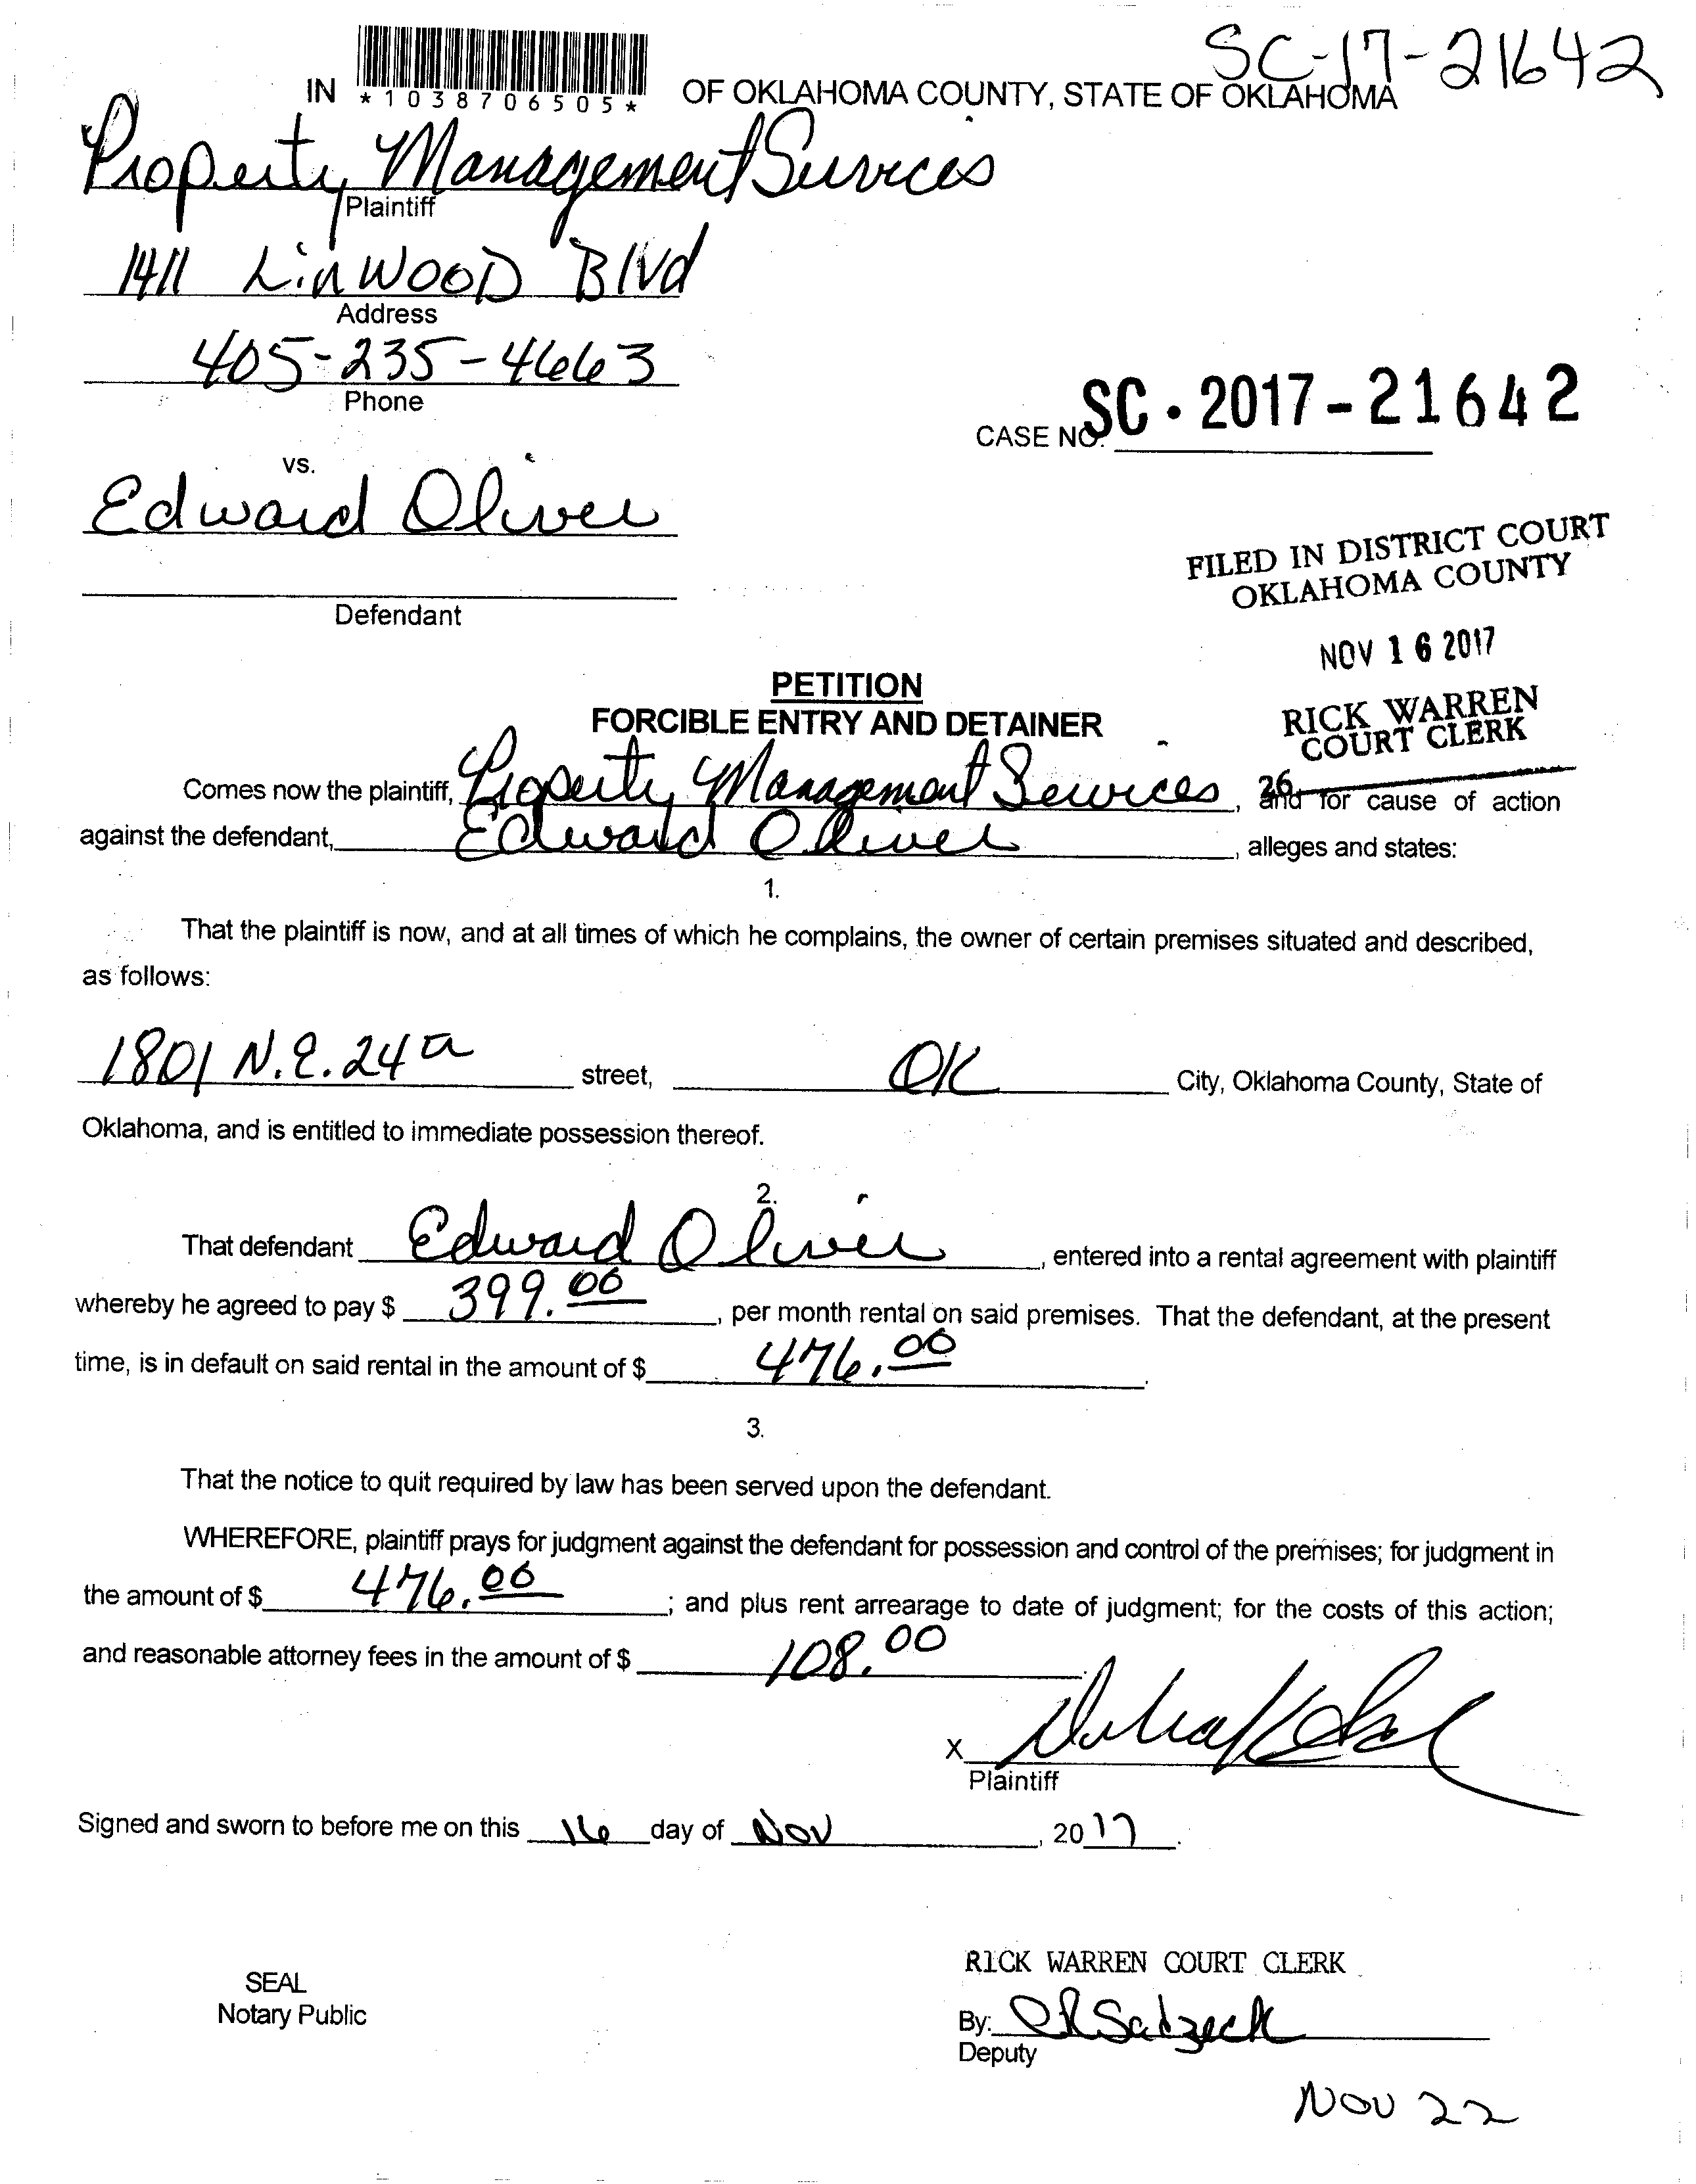 SC-17-21642
IN *1038706505* OF OKLAHOMA COUNTY, STATE OF OKLAHOMA
Property Management Services
Plaintiff
1411 LinWOOD Blvd
Address
405-235-4663
Phone
CASE NO. SC · 2017-21642
vs.
Edward Oliver
FILED IN DISTRICT COURT
OKLAHOMA COUNTY
Defendant
NOV 16 2017
PETITION
RICK WARREN
COURT CLERK
FORCIBLE ENTRY AND DETAINER
26
Comes now the plaintiff, Property Management Services, and for cause of action
against the defendant, Edward Oliver, alleges and states:
1.
That the plaintiff is now, and at all times of which he complains, the owner of certain premises situated and described,
as follows:
1801 N.E. 24 street, OK City, Oklahoma County, State of
Oklahoma, and is entitled to immediate possession thereof.
2.
That defendant Edward Oliver, entered into a rental agreement with plaintiff
whereby he agreed to pay $ 399.00, per month rental on said premises. That the defendant, at the present
time, is in default on said rental in the amount of $ 476.00.
3.
That the notice to quit required by law has been served upon the defendant.
WHEREFORE, plaintiff prays for judgment against the defendant for possession and control of the premises; for judgment in
the amount of $ 476.00; and plus rent arrearage to date of judgment; for the costs of this action;
and reasonable attorney fees in the amount of $ 108.00
X
Plaintiff
Signed and sworn to before me on this 16 day of Nov, 2017.
RICK WARREN COURT CLERK
SEAL
Notary Public
By:
Deputy
NOV 22